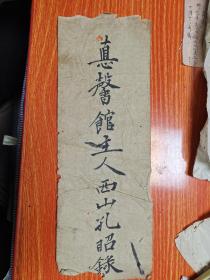 惪馨館主人西山孔昭錄